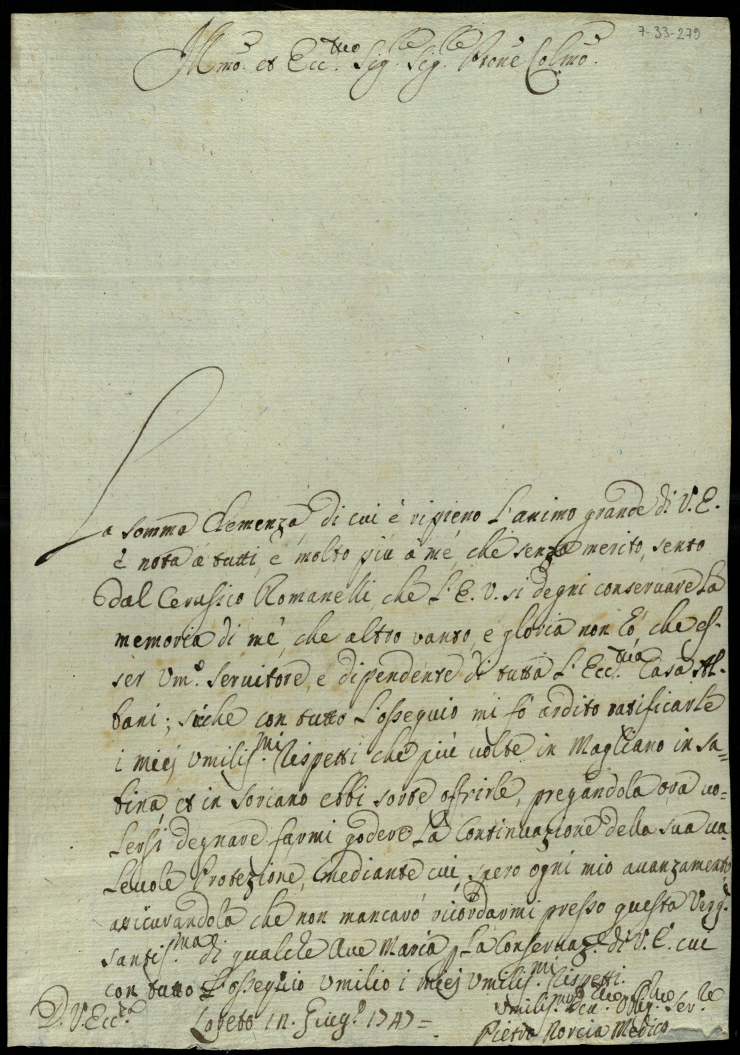 7-33-279
Ill.mo et Ecc.mo Sig.re Sig.re Prone Colmo.
La somma Clemenza, di cui è ripieno l'animo grande di V. E.
è nota a tutti, e molto più a me, che senza merito, sento
dal Cerusico Romanelli, che l'E. V. si degni conservare la
memoria di me, che altro vanto, e gloria non ò, che es-
ser Vm.o servitore, e dipendente di tutta l'Ecc.ma Casa Al-
bani; siche con tutto l'ossequio mi fo ardito ratificarle
i miej Vmilis.mi Rispetti che più volte in Magliano in Sa-
bina, et in Soriano ebbi sorte offrirle, pregandola ora vo-
lersi degnare farmi godere la Continuazione della sua va-
levole Protezione, mediante cui, spero ogni mio avanzamento
assicurandola che non mancarò ricordarmi presso questa Verg.
Santis.ma di qualche Ave Maria p. la Conservaz.e di V. E. cui
con tutto l'ossequio Vmilio i miej Vmilis.mi Rispetti.
D. V. Ecc.za
Loreto 1 n. Giug.o 1747=
Vmilis.mo Obblig.mo Ser.re
Pietro Norcia Medico